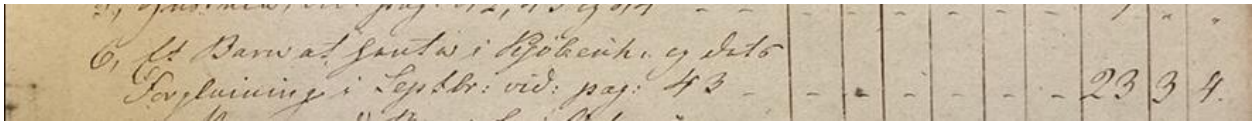 pag: 42, 43 og 44
6, Et Barn at hente i Kjöbenh. og dets
Forpleining i Septbr: vid: pag: 43 - - - - - - - - 23 3 4.